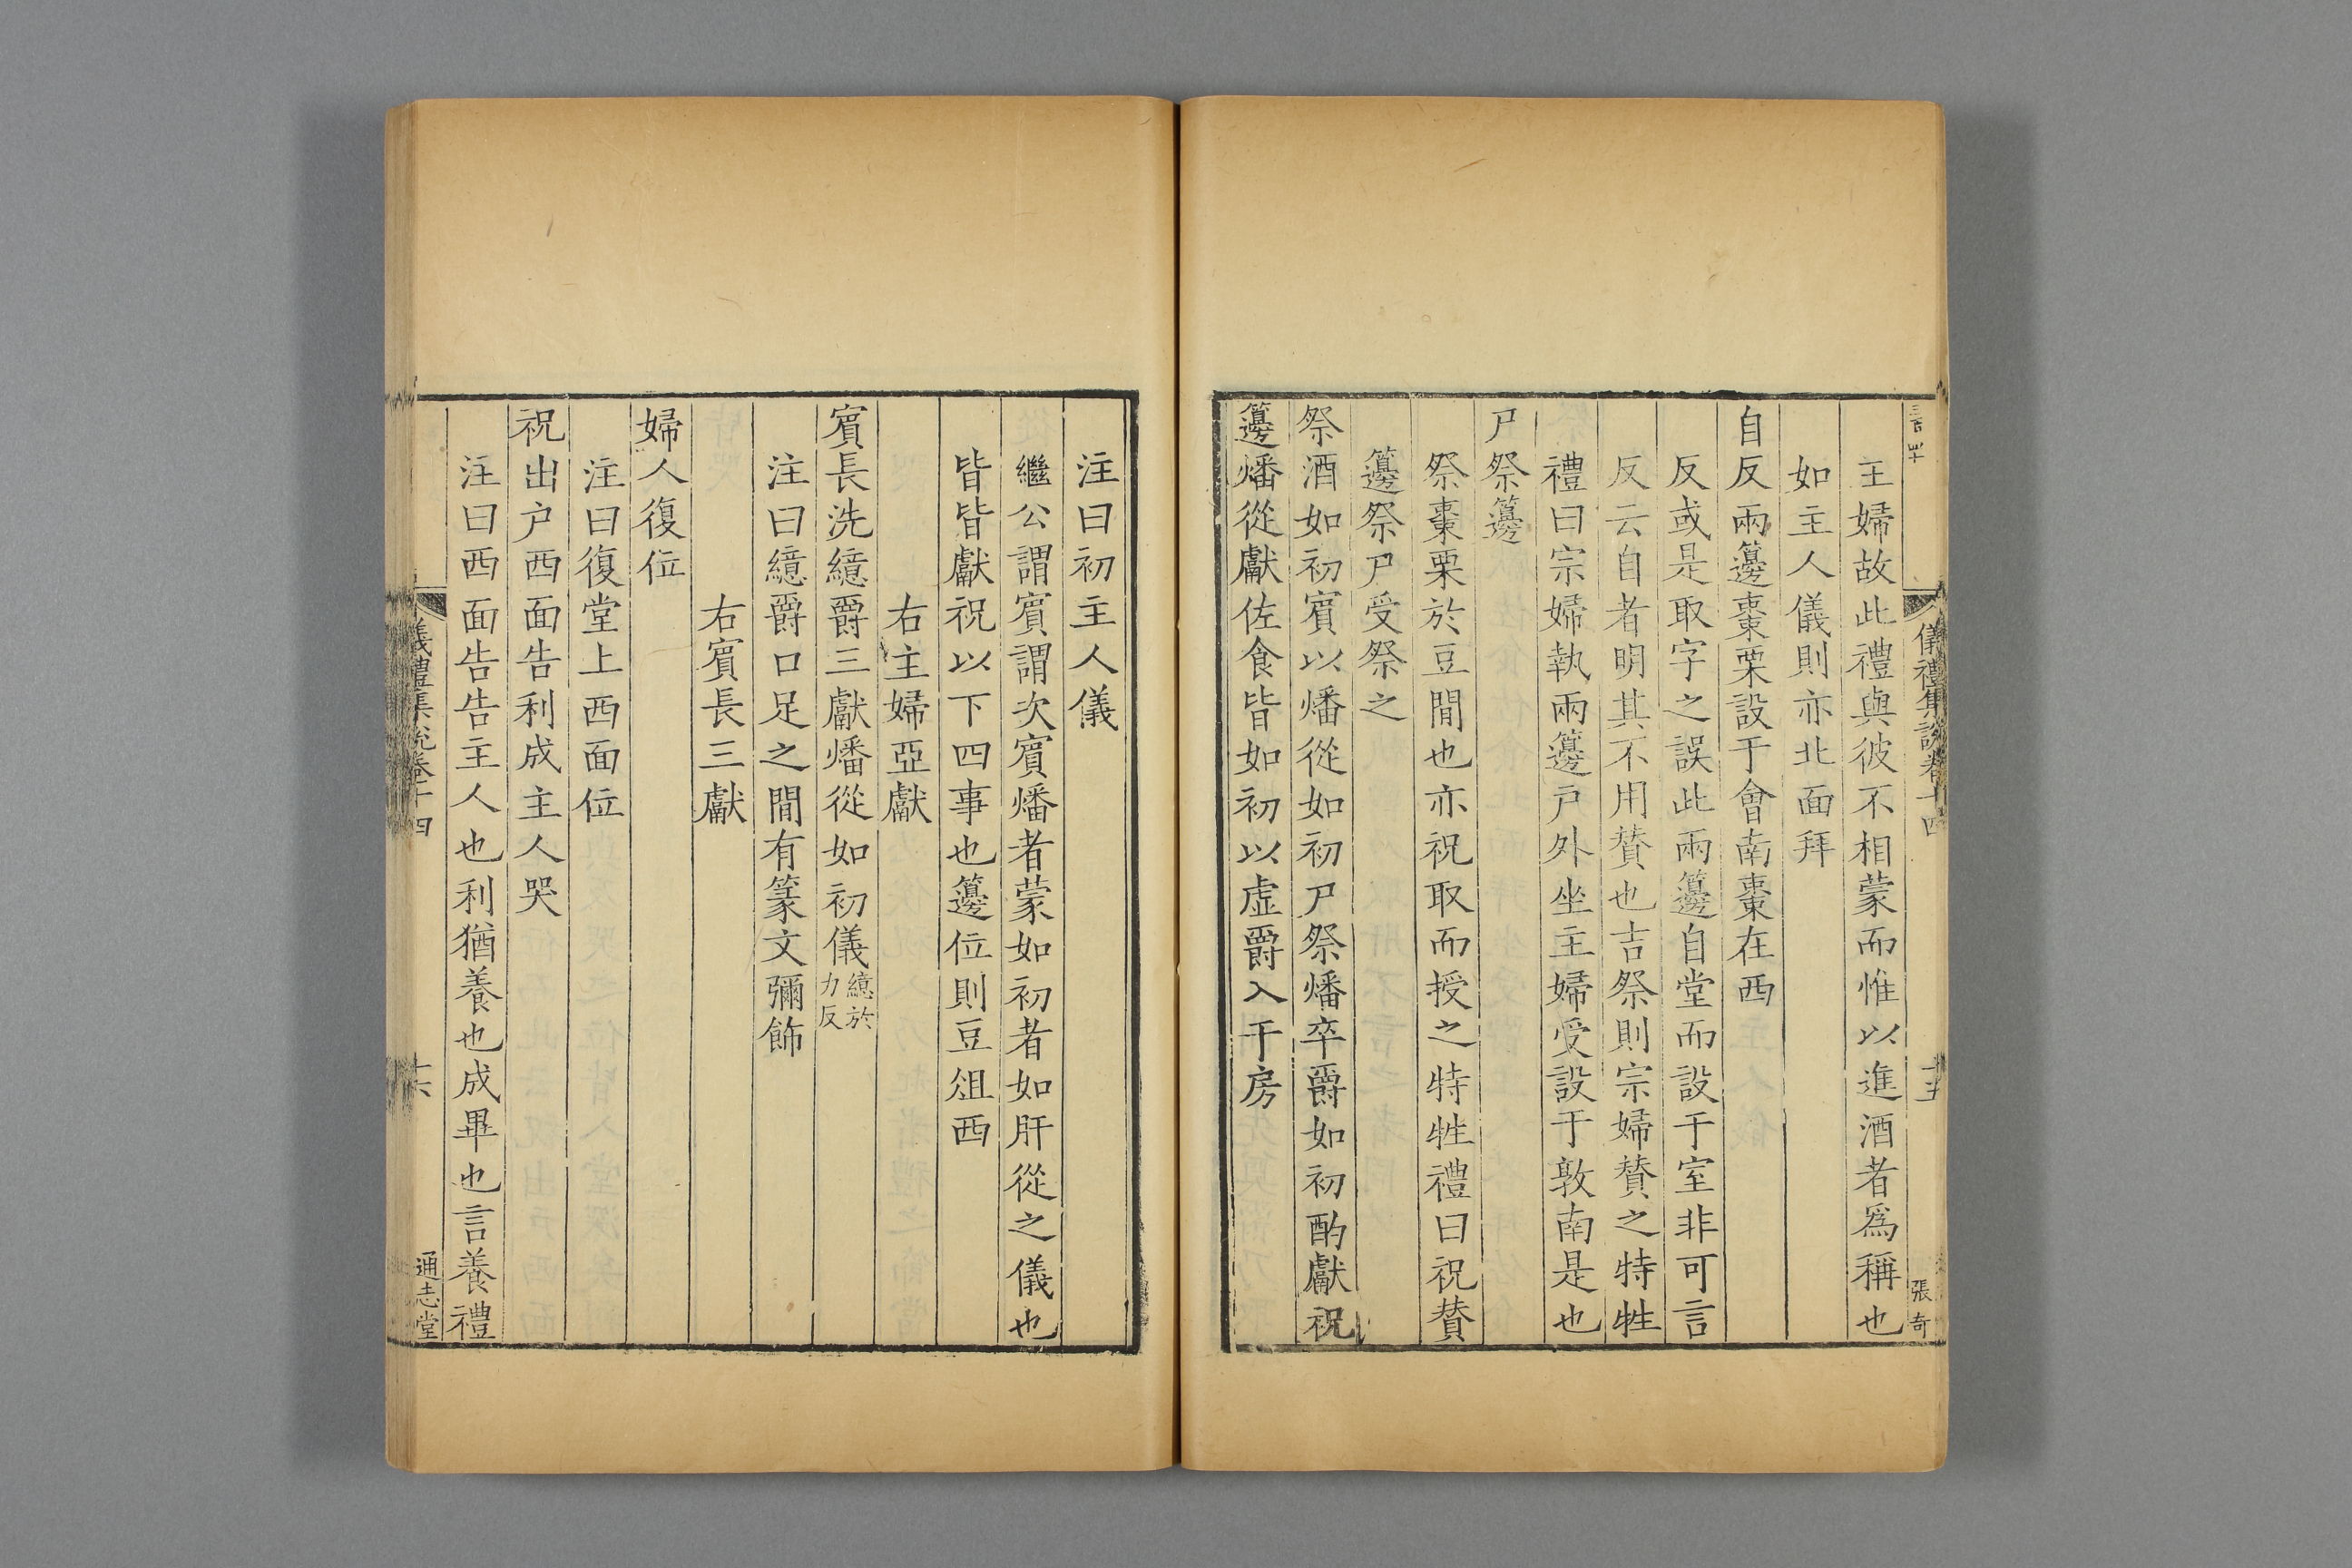 儀禮集說卷十四
十五
張奇
主婦故此禮與彼不相蒙而惟以進酒者爲稱也
如主人儀則亦北面拜
自反兩籩棗栗設于會南棗在西
反或是取字之誤此兩籩自堂而設于室非可言
反云自者明其不用賛也吉祭則宗婦賛之特牲
禮曰宗婦執兩籩戶外坐主婦受設于敦南是也
尸祭籩
祭棗栗於豆閒也亦祝取而授之特牲禮曰祝賛
籩祭尸受祭之
祭酒如初賓以燔從如初尸祭燔卒爵如初酌獻祝
籩燔從獻佐食皆如初以虛爵入于房
注曰初主人儀
繼公謂賓謂次賓燔者蒙如初者如肝從之儀也
皆皆獻祝以下四事也籩位則豆俎西
右主婦亞獻
賓長洗繶爵三獻燔從如初儀繶於力反
注曰繶爵口足之閒有篆文彌飾
右賓長三獻
婦人復位
注曰復堂上西面位
祝出户西面告利成主人哭
注曰西面告告主人也利猶養也成畢也言養禮
儀禮集說卷十四
十六
通志堂